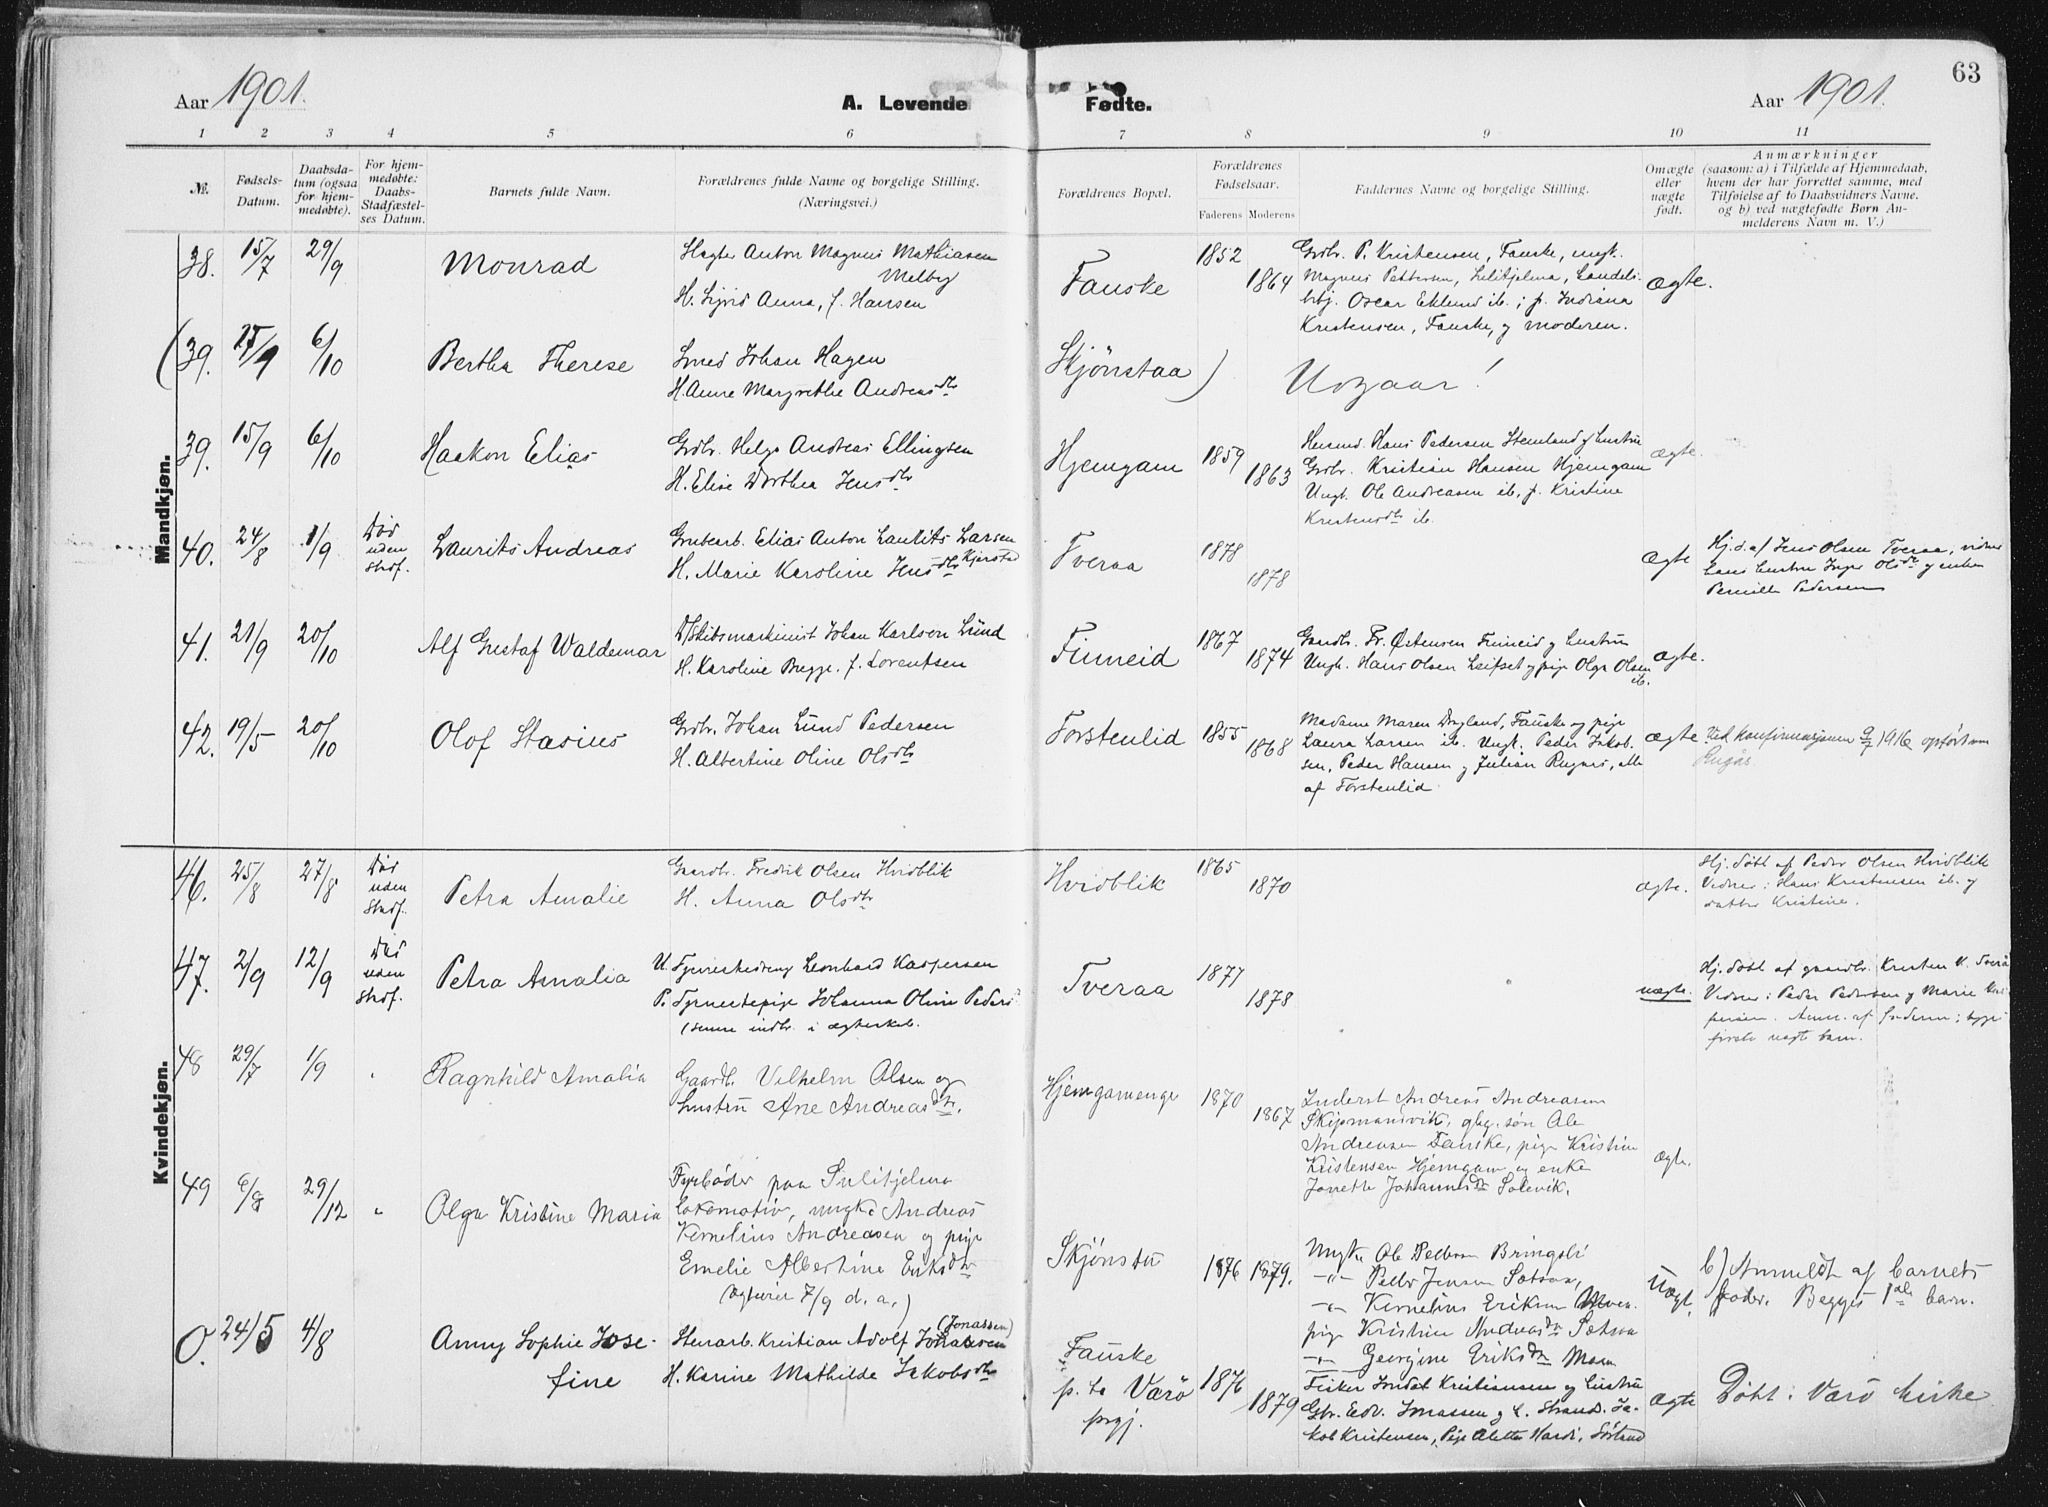 63
Aar 1901.
A. Levende Fødte.
Aar 1901.
1 2 3 4 5 6 7 8 9 10 11
№.
Fødsels-
Datum.
Daabsda-
tum (ogsaa
for hjem-
medøbte).
For hjem-
medøbte:
Daabs-
Stadfæstel-
ses Datum.
Barnets fulde Navn.
Forældrenes fulde Navne og borgelige Stilling.
(Næringsvei.)
Forældrenes Bopæl.
Forældrenes
Fødselsaar.
Faderens Moderens
Faddernes Navne og Stilling.
Omægte
eller
nægte
født.
Anmærkninger
(saasom: a) i Tilfælde af Hjemmedaab,
hvem der har forrettet samme, med
Tilføielse af to Daabsvidners Navne.
og b) ved nægtefødte Børn An-
melderens Navn m. V.)
Mandkjøn.
38. 15/7 29/9 Monrad
Anton Magnus Mathiasen
Melby
H. Sigrid Anna, f. Hansen
Fauske 1852 1864
Grdbr. P. Kristensen, Fauske, ungk.
Magnus Pettersen, Sulitjelma, Handels-
btj. Oscar Eklund ib.; f. Indiana
Kristensen, Fauske, og moderen.
ægte.
(39. 6/10 Bertha Therese
Smed Johan Hagen
H. Anne Margrethe Andreasdtr
Skjønstaa)
Udgaar!
39. 15/9 6/10 Haakon Elias
Grdbr. Helge Andreas Ellingsen
H. Elise Dorthea Jensdtr
Hjemgam 1859 1863
Hans Pedersen Stemland og hustru
Grdbr. Kristian Hansen Hjemgam
Ungk. Ole Andreasen ib., p. Kristine
Kristensdtr ib.
ægte.
40. 24/8 1/9 Død
uden
Stadf.
Laurits Andreas
Grubearb. Elias Anton Laurits Larsen
Kjerstad
H. Marie Karoline Jensdtr
Tveraa 1878 1878
Ægte
Hj.d. af Jens Olsen Tveraa, vidner
hans hustru Inger Olsdtr og enken
Pernille Pedersen
41. 21/9 20/10 Alf Gustaf Waldemar
D/Skibsmaskinist Johan Karlson Lund
H. Karoline Bugge, f. Lorentsen
Finneid 1867 1874
Gaardbr. Fr. Østensen Finneid og hustru
Ungk. Hans Olsen Leifset og pige Olga Olsen
ib.
ægte.
42. 19/5 20/10 Olof Stasius
Grdbr. Johan Lund Pedersen
H. Albertine Oline Olsdtr
Forstenlid 1855 1868
Madame Maren Dygland, Fauske og pige
Laura Larsen ib. Ungk. Peder Jakob-
sen, Peder Hansen og Julian Rugaas, alle
af Forstenlid
ægte.
Ved Konfirmasjonen 9/7 1916 opført som
Rugås.
Kvindekjøn.
46. 25/8 27/8 Død
uden
Stadf.
Petra Amalie
Gaardbr. Fredrik Olsen Hvidblik
H. Anna Olsdtr
Hvidblik 1865 1870
ægte.
Hj. døbt af Peder Olsen Hvidblik
Vidner: Hans Kristensen ib. og
datter Kristine.
47. 2/9 12/9 Død
uden
Stadf.
Petra Amalia
U. Tjenestedreng Leonhard Kaspersen
P. Tjenestepige Johanna Oline Peders
(senere indtr. i ægteskab.
Tveraa 1877 1878
uægte.
Hj. døbt af gaardbr. Kristen U. Tverå
Vidner: Peder Pedersen og Marie
Anm. af faderen; begges
første uægte barn.
48 29/7 1/9 " Ragnhild Amalia
Gaardb. Vilhelm Olsen og
hustru Ane Andreasdtr.
Hjemgamenge 1870 1867
Inderst Andreas Andreasen
Skipmansvik, gbg. søn Ole
Andreasen Fauske, pige Kristine
Kristensen Hjemgam og enke
Jonette Johannesdtr Solevik.
Ægte.
49 6/8 29/12 " Olga Kristine Maria
Fyrbøder paa Sulitjelma
lokomotiv, ungk. Andreas
Kornelius Andreasen og pige
Emelie Albertine Eriksdtr
(Ægtevier 7/9 d. a.)
Skjønstu 1876 1879.
Ungk. Ole Pedersen Bringsli
—"— Peder Jensen Sætsaa,
—"— Kornelius Eriksen Moen
pige Kristine Andreasdtr Sætsaa
—"— Georgine Eriksdtr Moen
Uægt.
b) Anmeldt af barnets
fader. Begges 1ste barn.
0. 24/5 4/8 Anny Sophie Jose-
fine
(Jonassen)
Stenarb. Kristian Adolf Johansen
H. Karine Mathilde Jakobsdtr
Fauske
p.t. Værø
prgj.
1876 1879
Fisker Kristiansen og hustru
Gbr. Edv. Jonassen og h. Strand. Ja-
kob Kristensen, Pige Alette Hardi, Sørland
Ægte
Døbt i Værø kirke